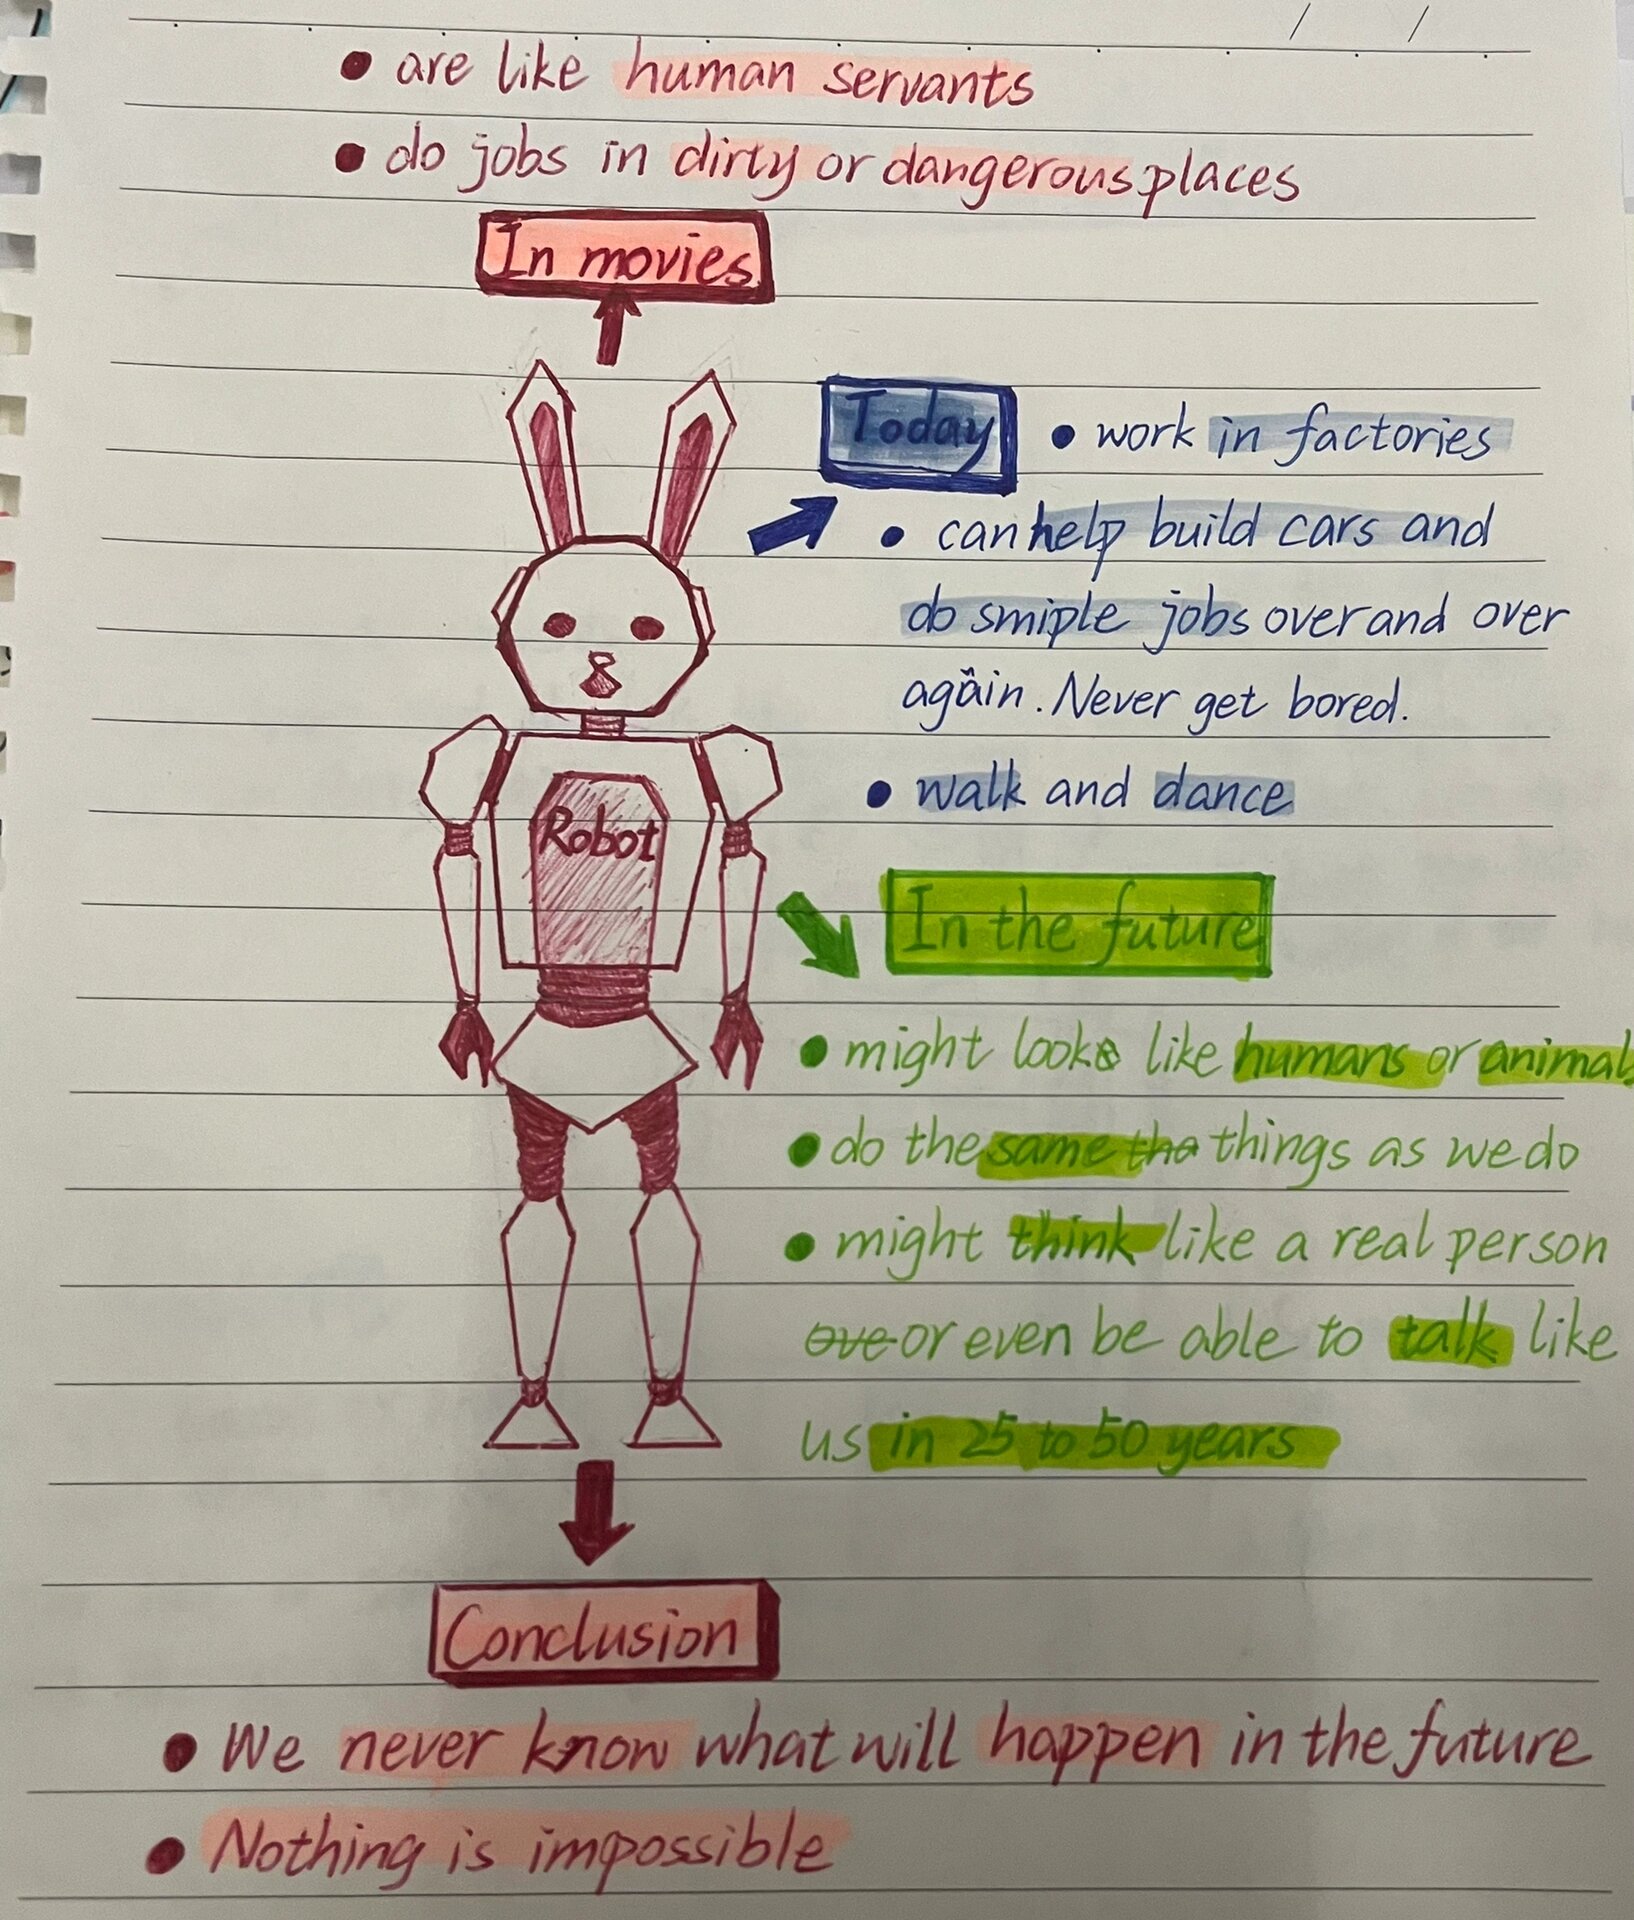 • are like human servants
• do jobs in dirty or dangerous places
In movies
Today
• work in factories
• can help build cars and
do smiple jobs over and over
again. Never get bored.
• walk and dance
Robot
In the future
• might look like humans or animals
• do the same things as we do
• might think like a real person
or even be able to talk like
us in 25 to 50 years
Conclusion
• We never know what will happen in the future
• Nothing is impossible